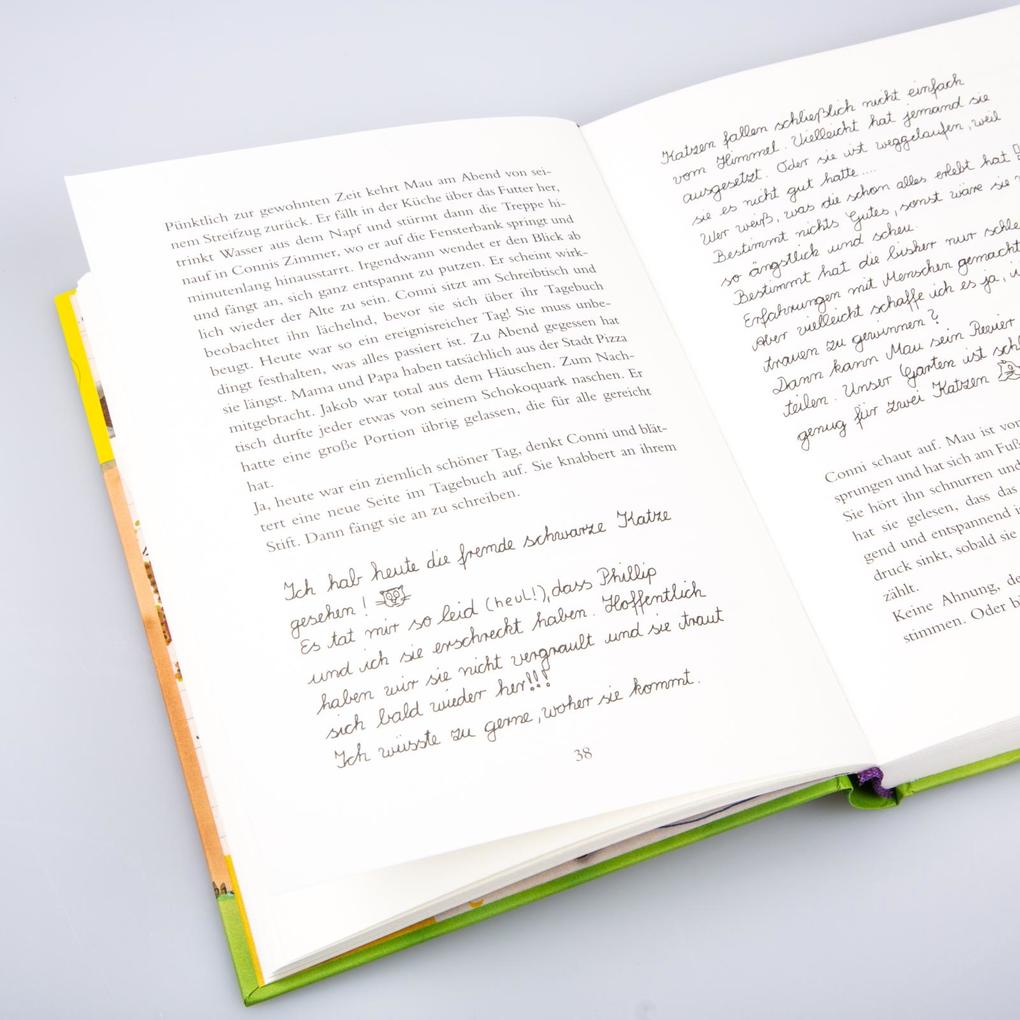 Pünktlich zur gewohnten Zeit kehrt Mau am Abend von sei-
nem Streifzug zurück. Er fällt in der Küche über das Futter her,
trinkt Wasser aus dem Napf und stürmt dann die Treppe hi-
nauf in Connis Zimmer, wo er auf die Fensterbank springt und
minutenlang hinausstarrt. Irgendwann wendet er den Blick ab
und fängt an, sich ganz entspannt zu putzen. Er scheint wirk-
lich wieder der Alte zu sein. Conni sitzt am Schreibtisch und
beobachtet ihn lächelnd, bevor sie sich über ihr Tagebuch
beugt. Heute war so ein ereignisreicher Tag! Sie muss unbe-
dingt festhalten, was alles passiert ist. Zu Abend gegessen hat
sie längst. Mama und Papa haben tatsächlich aus der Stadt Pizza
mitgebracht. Jakob war total aus dem Häuschen. Zum Nach-
tisch durfte jeder etwas von seinem Schokoquark naschen. Er
hatte eine große Portion übrig gelassen, die für alle gereicht
hat.
Ja, heute war ein ziemlich schöner Tag, denkt Conni und blät-
tert eine neue Seite im Tagebuch auf. Sie knabbert an ihrem
Stift. Dann fängt sie an zu schreiben.
Ich hab heute die fremde schwarze Katze
gesehen!
Es tat mir so leid (heul!), dass Phillip
und ich sie erschreckt haben. Hoffentlich
haben wir sie nicht vergrault und sie traut
sich bald wieder her!!!
Ich wüsste zu gerne, woher sie kommt.
38
Katzen fallen schließlich nicht einfach
vom Himmel. Vielleicht hat jemand sie
ausgesetzt. Oder sie ist weggelaufen, weil
sie es nicht gut hatte ....
Wer weiß, was die schon alles erlebt hat
Bestimmt nichts Gutes, sonst wäre sie
so ängstlich und scheu.
Bestimmt hat die bisher nur schle
Erfahrungen mit Menschen gemacht
Aber vielleicht schaffe ich es ja, i
trauen zu gewinnen?
Dann kann Mau sein Revier
teilen. Unser Garten ist schl
genug für zwei Katzen
Conni schaut auf. Mau ist vo
sprungen und hat sich am Fuß
Sie hört ihn schnurren und
hat sie gelesen, dass das
gend und entspannend i
druck sinkt, sobald sie
zählt.
Keine Ahnung, de
stimmen. Oder bi